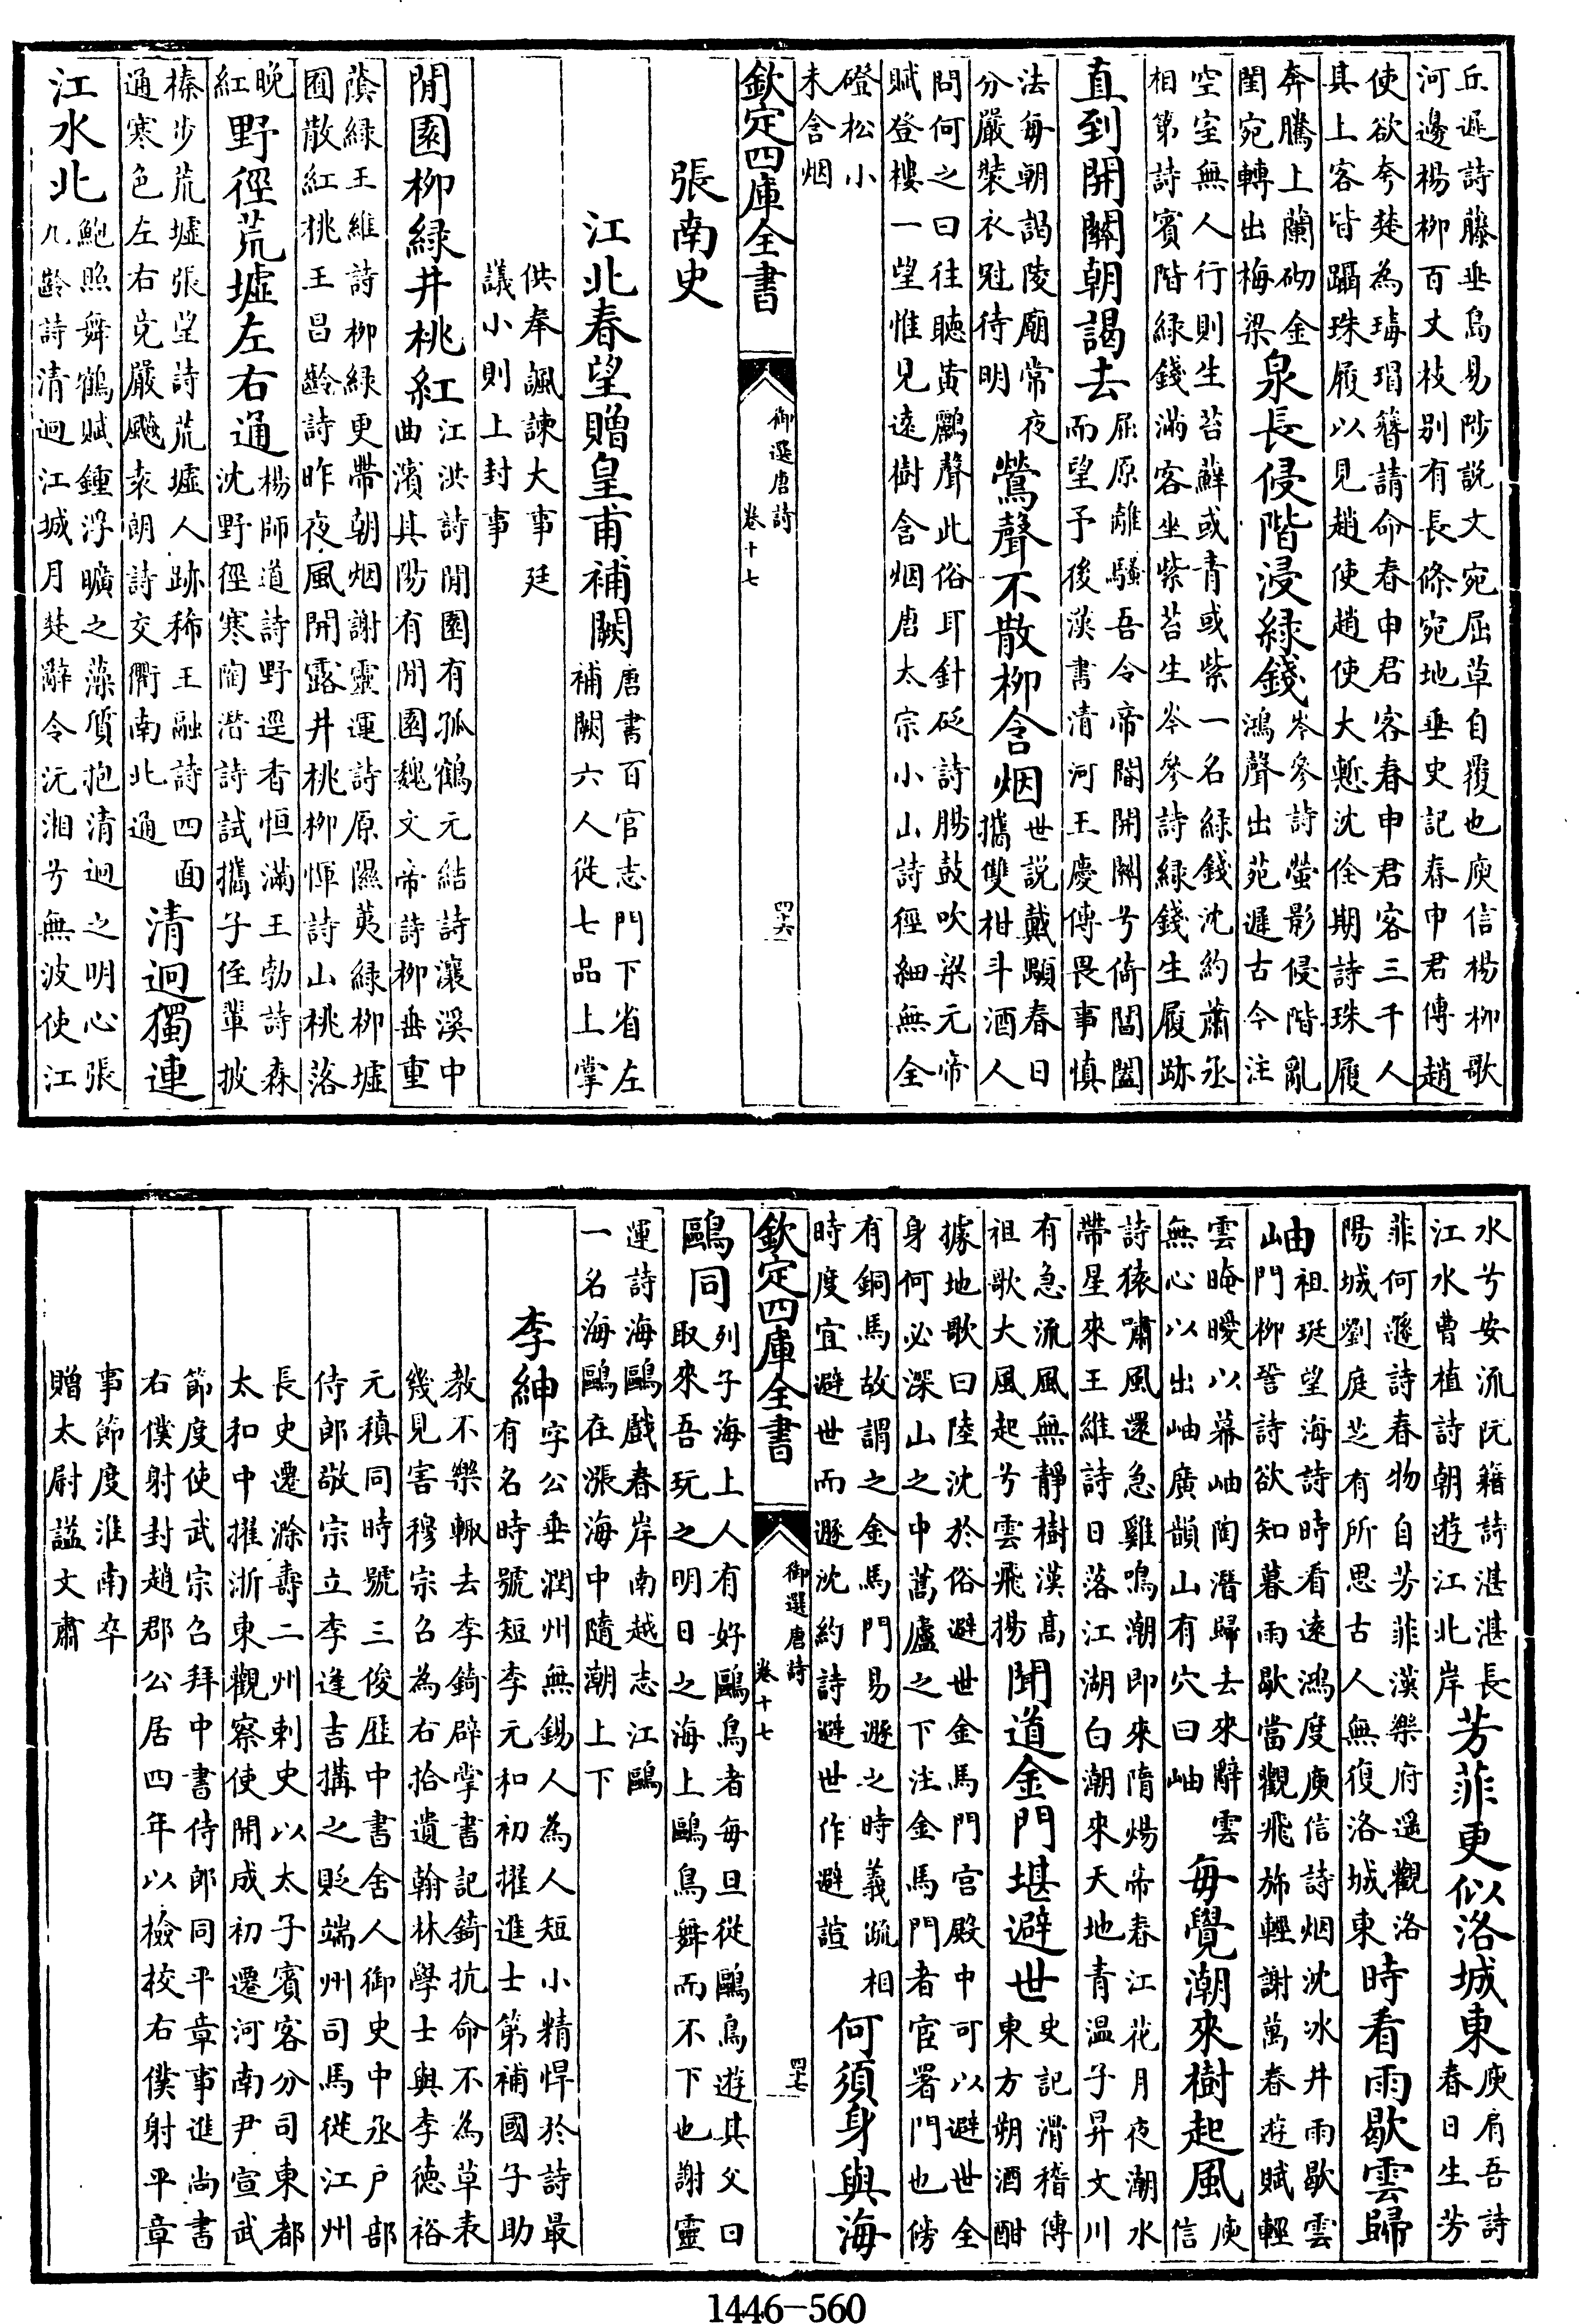 丘遲詩藤垂島易陟説文宛屈草自覆也庾信楊柳歌
河邊楊柳百丈枝别有長條宛地垂史記春申君傳趙
使欲夸楚為瑇瑁簪請命春申君客春申君客三千人
其上客皆躡珠履以見趙使趙使大慙沈佺期詩珠履
奔騰上蘭砌金
閨宛轉出梅梁
泉長侵階浸緑錢
岑參詩螢影侵階亂
鴻聲出苑遲古今注
空室無人行則生苔蘚或青或紫一名緑錢沈約蕭丞
相第詩賓階緑錢滿客坐紫苔生岑參詩緑錢生履跡
直到開關朝謁去
屈原離騷吾令帝閽開關兮倚閶闔
而望予後漢書清河王慶傳畏事慎
法每朝謁陵廟常夜
分嚴裝衣冠待明
鶯聲不散柳含烟
世説戴顒春日
攜雙柑斗酒人
問何之曰往聽黄鸝聲此俗耳針砭詩腸鼓吹梁元帝
賦登樓一望惟見遠樹含烟唐太宗小山詩徑細無全
磴松小
未含烟
欽定四庫全書
御選唐詩
卷十七
四十六
張南史
江北春望贈皇甫補闕
唐書百官志門下省左
補闕六人從七品上掌
供奉諷諫大事廷
議小則上封事
閒園柳緑井桃紅
江洪詩閒園有孤鶴元結詩瀼溪中
曲濱其陽有閒園魏文帝詩柳垂重
蔭緑王維詩柳緑更帶朝烟謝靈運詩原隰荑緑柳墟
囿散紅桃王昌齡詩昨夜風開露井桃柳惲詩山桃落
晚
紅
野徑荒墟左右通
楊師道詩野逕香恒滿王勃詩森
沈野徑寒陶潛詩試攜子侄輩披
榛步荒墟張望詩荒墟人跡稀王融詩四面
通寒色左右竟嚴飈袁朗詩交衢南北通
清迥獨連
江水北
鮑照舞鶴賦鍾浮曠之藻質抱清迥之明心張
九齡詩清迥江城月楚辭令沅湘兮無波使江
水兮安流阮籍詩湛湛長
江水曹植詩朝遊江北岸
芳菲更似洛城東
庾肩吾詩
春日生芳
菲何遜詩春物自芳菲漢樂府遥觀洛
陽城劉庭芝有所思古人無復洛城東
時看雨歇雲歸
岫
祖珽望海詩時看遠鴻度庾信詩烟沈冰井雨歇雲
門柳䛒詩欲知暮雨歇當觀飛斾輕謝萬春遊賦輕
雲晻曖以幕岫陶潛歸去來辭雲
無心以出岫廣韻山有穴曰岫
每覺潮來樹起風
庾
信
詩猿嘯風還急雞鳴潮即來隋煬帝春江花月夜潮水
帶星來王維詩日落江湖白潮來天地青温子昇文川
有急流風無靜樹漢高
祖歌大風起兮雲飛揚
聞道金門堪避世
史記滑稽傳
東方朔酒酣
據地歌曰陸沈於俗避世金馬門宫殿中可以避世全
身何必深山之中蒿廬之下注金馬門者宦署門也傍
有銅馬故謂之金馬門易遯之時義疏相
時度宜避世而遯沈約詩避世作避諠
何須身與海
欽定四庫全書
御選唐詩
卷十七
四十七
鷗同
列子海上人有好鷗鳥者每旦從鷗鳥遊其父曰
取來吾玩之明日之海上鷗鳥舞而不下也謝靈
運詩海鷗戲春岸南越志江鷗
一名海鷗在漲海中隨潮上下
李紳
字公垂潤州無錫人為人短小精悍於詩最
有名時號短李元和初擢進士第補國子助
教不樂輙去李錡辟掌書記錡抗命不為草表
幾見害穆宗召為右拾遺翰林學士與李德裕
元稹同時號三俊歷中書舍人御史中丞户部
侍郎敬宗立李逢吉搆之貶端州司馬徙江州
長史遷滁壽二州刺史以太子賓客分司東都
太和中擢浙東觀察使開成初遷河南尹宣武
節度使武宗召拜中書侍郎同平章事進尚書
右僕射封趙郡公居四年以檢校右僕射平章
事節度淮南卒
贈太尉諡文肅
1446-560